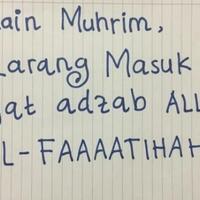 lain Muhrim,
larang Masuk
gat adzab ALL
L-FAAAATIHAH